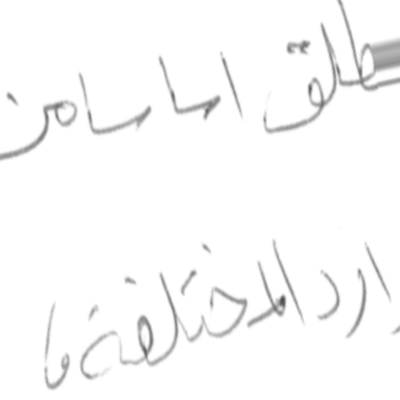 طلق اساسا من
ارد المختلفة با